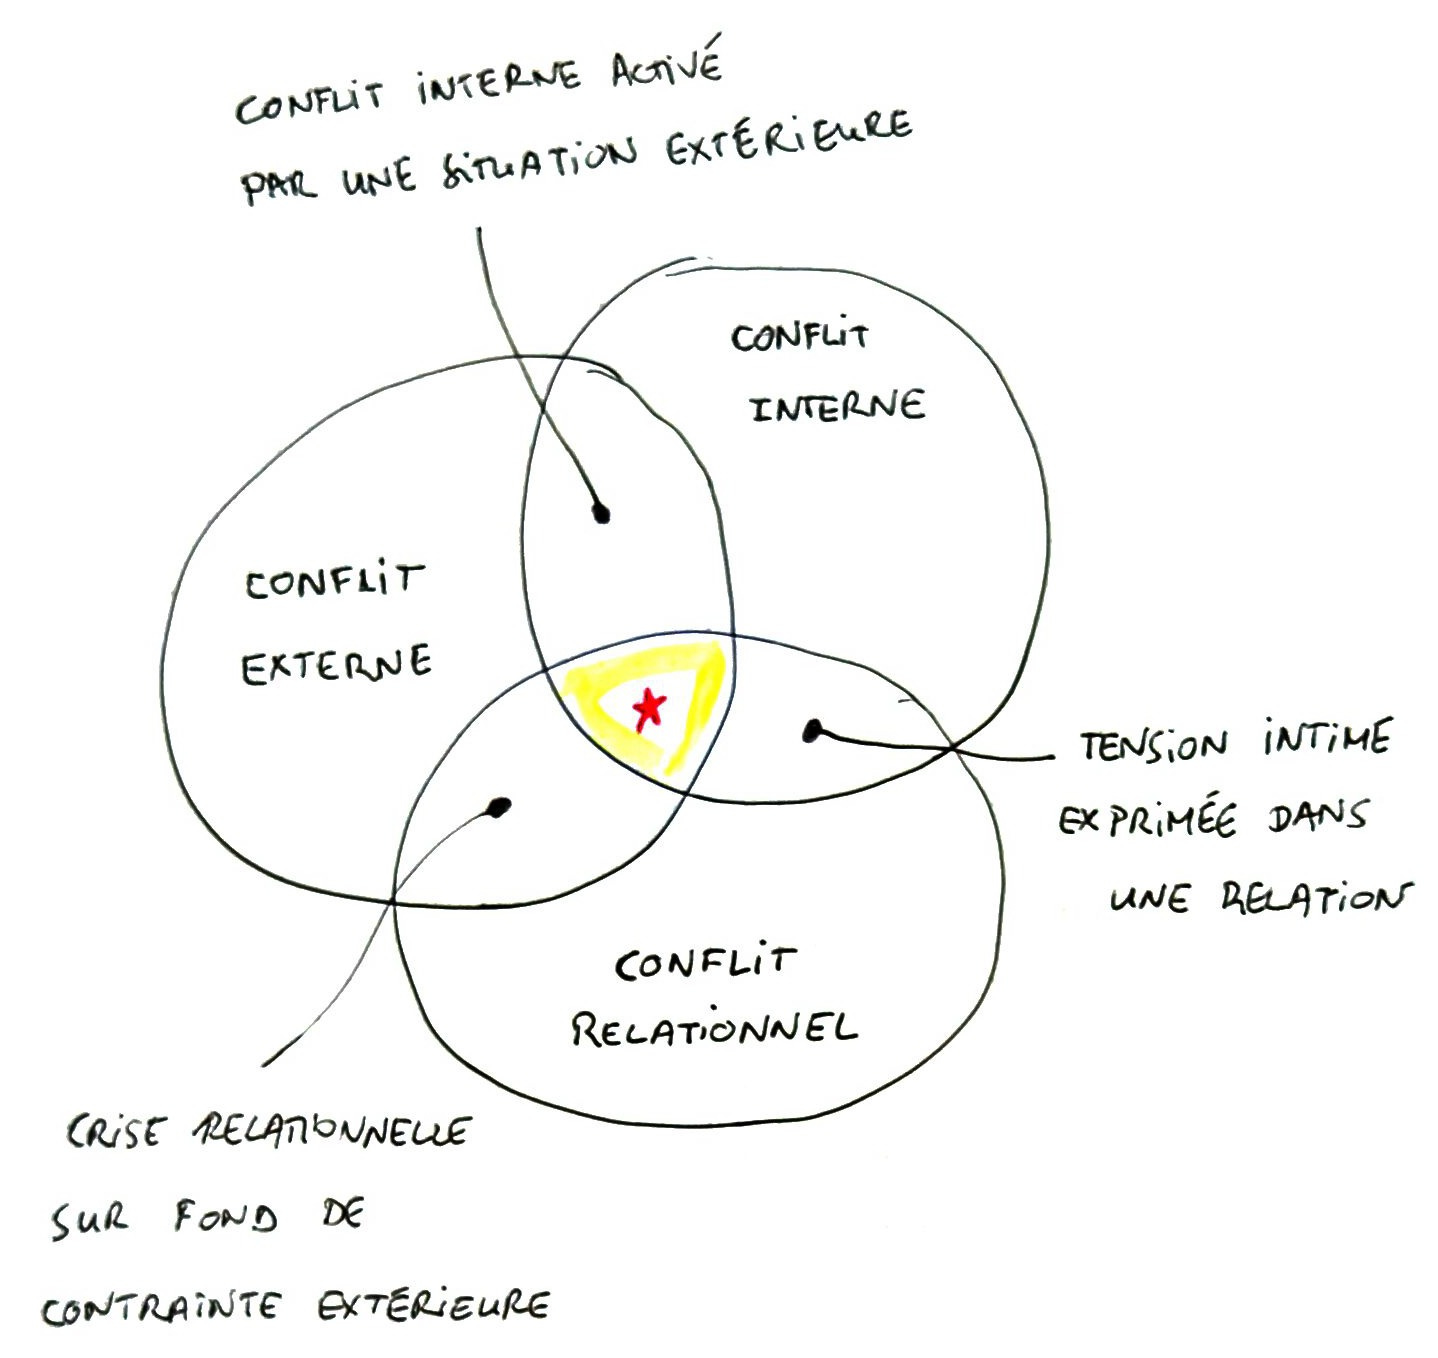 CONFLIT INTERNE ACTIVÉ
PAR UNE SITUATION EXTÉRIEURE
CONFLIT
INTERNE
CONFLIT
EXTERNE
TENSION INTIME
EXPRIMÉE DANS
UNE RELATION
CONFLIT
RELATIONNEL
CRISE RELATIONNELLE
SUR FOND DE
CONTRAINTE EXTÉRIEURE